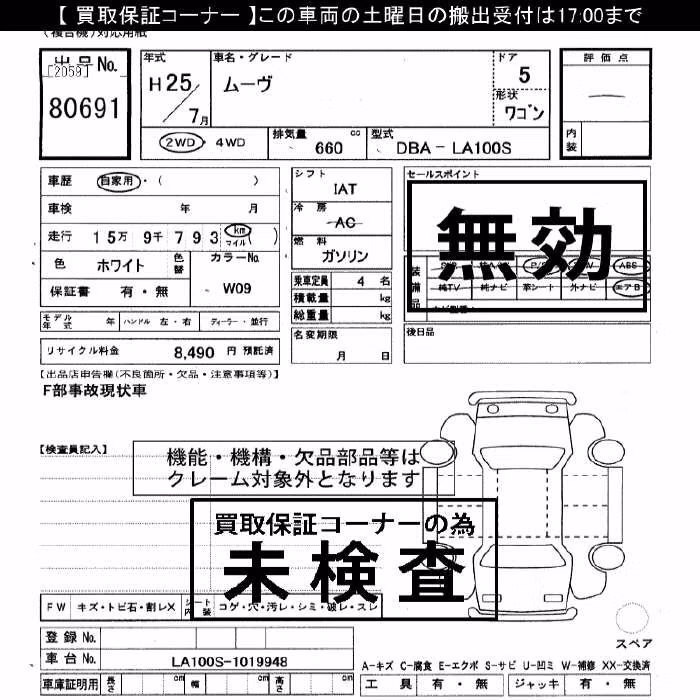 【 買取保証コーナー 】この車両の土曜日の搬出受付は17:00まで
(複合機)対応用紙
出品No.
[2059]
80691
年式
H25/7月
車名・グレード
ムーヴ
ドア
5
形状
ワゴン
評価点
内装
2WD・4WD
排気量 660 cc
型式 DBA-LA100S
車歴 自家用・( )
車検 年 月
走行 15万 9千 793 km マイル ( )
色 ホワイト 色替 カラーNo.
保証書 有・無 W09
モデル年式 年 ハンドル 左・右 ディーラー・並行
リサイクル料金 8,490 円 預託済
シフト
IAT
冷房
AC
燃料
ガソリン
乗車定員 4 名
積載量 kg
総重量 kg
名変期限
月 日
セールスポイント
無効
装備品
ABS
純TV 純ナビ 革シート 外ナビ エアB
後日品
【出品店申告欄(不良箇所・欠品・注意事項等)】
F部事故現状車
【検査員記入】
機能・機構・欠品部品等は
クレーム対象外となります
買取保証コーナーの為
未検査
FW キズ・トビ石・割レX シート内装 コゲ・穴・汚レ・シミ・破レ・スレ
スペア
登録No.
車台No. LA100S-1019948
車庫証明用 長さ cm 幅 cm 高さ cm
A-キズ C-腐食 E-エクボ S-サビ U-凹ミ W-補修 XX-交換済
工具 有・無 ジャッキ 有・無